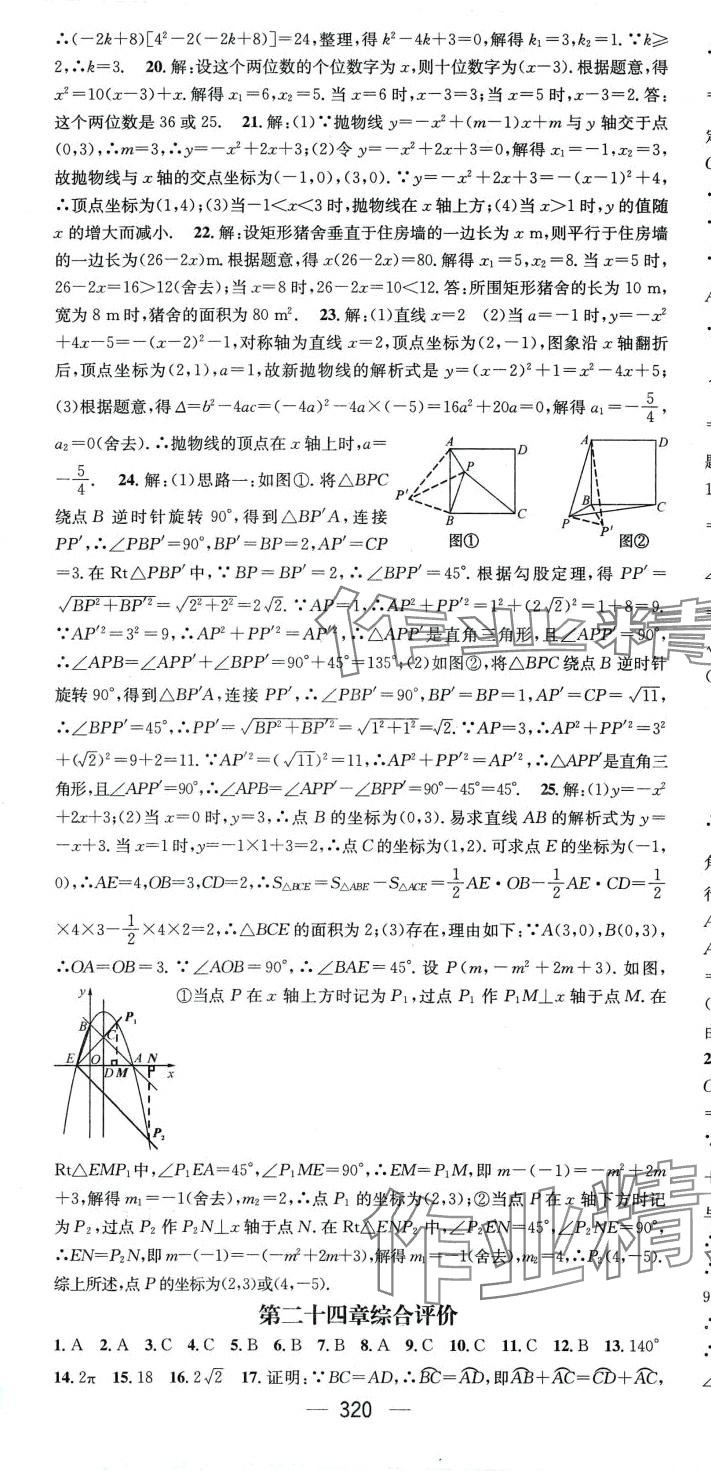 ∴(−2k+8)[4²−2(−2k+8)]=24,整理,得 k²−4k+3=0,解得 k₁=3,k₂=1.∵k⩾
2,∴k=3. 20.解:设这个两位数的个位数字为 x,则十位数字为(x−3).根据题意,得
x²=10(x−3)+x.解得 x₁=6,x₂=5.当 x=6 时,x−3=3;当 x=5 时,x−3=2.答:
这个两位数是 36 或 25. 21.解:(1)∵抛物线 y=−x²+(m−1)x+m 与 y 轴交于点
(0,3),∴m=3,∴y=−x²+2x+3;(2)令 y=−x²+2x+3=0,解得 x₁=−1,x₂=3,
故抛物线与 x 轴的交点坐标为(−1,0),(3,0).∵y=−x²+2x+3=−(x−1)²+4,
∴顶点坐标为(1,4);(3)当−1<x<3 时,抛物线在 x 轴上方;(4)当 x>1 时,y 的值随
x 的增大而减小. 22.解:设矩形猪舍垂直于住房墙的一边长为 x m,则平行于住房墙
的一边长为(26−2x)m.根据题意,得 x(26−2x)=80.解得 x₁=5,x₂=8.当 x=5 时,
26−2x=16>12(舍去);当 x=8 时,26−2x=10<12.答:所围矩形猪舍的长为 10 m,
宽为 8 m 时,猪舍的面积为 80 m². 23.解:(1)直线 x=2 (2)当 a=−1 时,y=−x²
+4x−5=−(x−2)²−1,对称轴为直线 x=2,顶点坐标为(2,−1),图象沿 x 轴翻折
后,顶点坐标为(2,1),a=1,故新抛物线的解析式是 y=(x−2)²+1=x²−4x+5;
(3)根据题意,得 Δ=b²−4ac=(−4a)²−4a×(−5)=16a²+20a=0,解得 a₁=−5/4,
a₂=0(舍去).∴抛物线的顶点在 x 轴上时,a=
−5/4. 24.解:(1)思路一:如图①.将△BPC
绕点 B 逆时针旋转 90°,得到△BP′A,连接
PP′,∴∠PBP′=90°,BP′=BP=2,AP′=CP
A D P P′ B C 图①
A D B C P P′ 图②
=3.在 Rt△PBP′中,∵BP=BP′=2,∴∠BPP′=45°.根据勾股定理,得 PP′=
√(BP²+BP′²)=√(2²+2²)=2√2.∵AP=1,∴AP²+PP′²=1²+(2√2)²=1+8=9.
∵AP′²=3²=9,∴AP²+PP′²=AP′²,∴△APP′是直角三角形,且∠APP′=90°,
∴∠APB=∠APP′+∠BPP′=90°+45°=135°;(2)如图②,将△BPC 绕点 B 逆时针
旋转 90°,得到△BP′A,连接 PP′,∴∠PBP′=90°,BP′=BP=1,AP′=CP=√11,
∴∠BPP′=45°,∴PP′=√(BP²+BP′²)=√(1²+1²)=√2.∵AP=3,∴AP²+PP′²=3²
+(√2)²=9+2=11.∵AP′²=(√11)²=11,∴AP²+PP′²=AP′²,∴△APP′是直角三
角形,且∠APP′=90°,∴∠APB=∠APP′−∠BPP′=90°−45°=45°. 25.解:(1)y=−x²
+2x+3;(2)当 x=0 时,y=3,∴点 B 的坐标为(0,3).易求直线 AB 的解析式为 y=
−x+3.当 x=1 时,y=−1×1+3=2,∴点 C 的坐标为(1,2).可求点 E 的坐标为(−1,
0),∴AE=4,OB=3,CD=2,∴S△BCE=S△ABE−S△ACE=1/2 AE·OB−1/2 AE·CD=1/2
×4×3−1/2×4×2=2,∴△BCE 的面积为 2;(3)存在,理由如下:∵A(3,0),B(0,3),
∴OA=OB=3.∵∠AOB=90°,∴∠BAE=45°.设 P(m,−m²+2m+3).如图,
①当点 P 在 x 轴上方时记为 P₁,过点 P₁ 作 P₁M⊥x 轴于点 M.在
y B P₁ C E O D M A N x P₂
Rt△EMP₁中,∠P₁EA=45°,∠P₁ME=90°,∴EM=P₁M,即 m−(−1)=−m²+2m
+3,解得 m₁=−1(舍去),m₂=2,∴点 P₁ 的坐标为(2,3);②当点 P 在 x 轴下方时记
为 P₂,过点 P₂ 作 P₂N⊥x 轴于点 N.在 Rt△ENP₂ 中,∠P₂EN=45°,∠P₂NE=90°,
∴EN=P₂N,即 m−(−1)=−(−m²+2m+3),解得 m₁=−1(舍去),m₂=4,∴P₂(4,−5).
综上所述,点 P 的坐标为(2,3)或(4,−5).
第二十四章综合评价
1. A 2. A 3. C 4. C 5. B 6. B 7. B 8. A 9. C 10. C 11. C 12. B 13. 140°
14. 2π 15. 18 16. 2√2 17. 证明:∵BC=AD,∴⌒BC=⌒AD,即⌒AB+⌒AC=⌒CD+⌒AC,
— 320 —
作业精
作业精